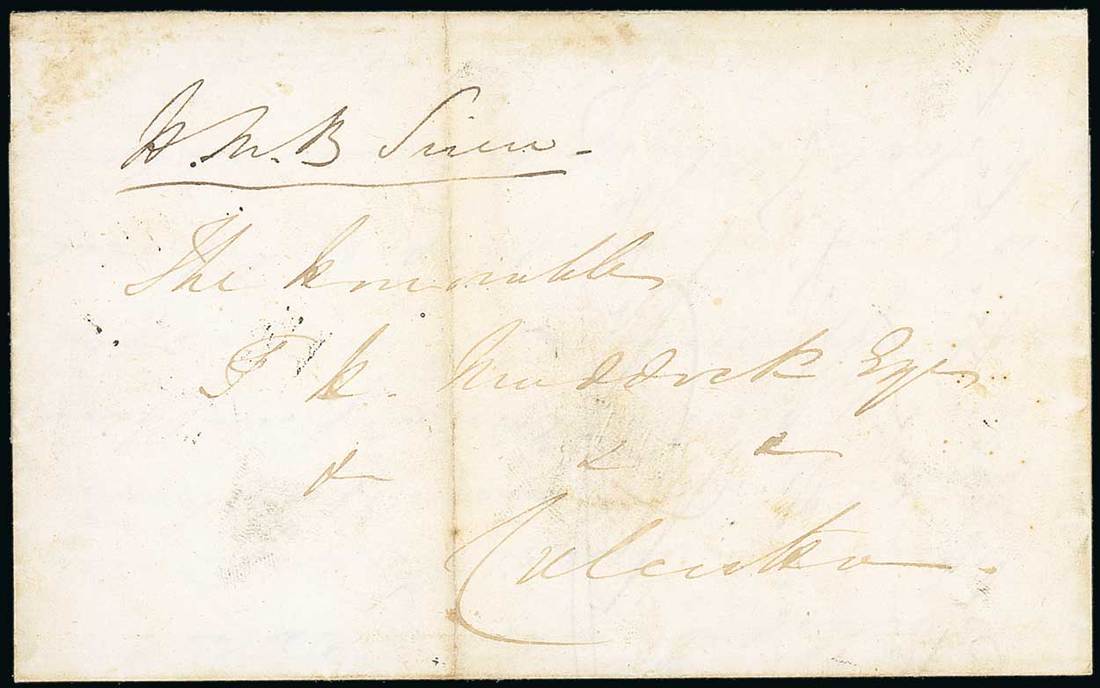 H. M. B Siren -
The honorable
T. H. Maddock Esqr
& & &
Calcutta.